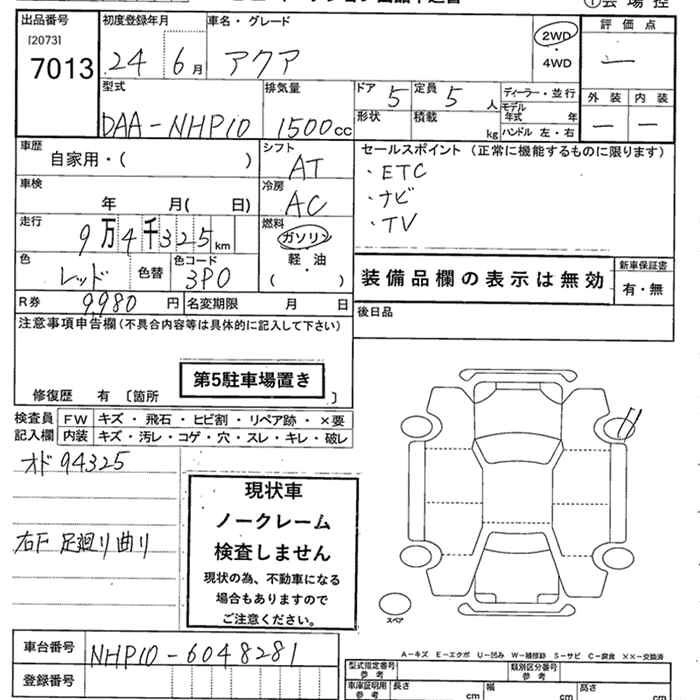 出品番号
[2073]
7013
初度登録年月
24 6月
車名・グレード
アクア
2WD
・
4WD
評価点
外装 内装
型式
DAA-NHP10
排気量
1500cc
ドア 5
定員 5人
形状
積載 kg
ディーラー・並行
モデル年式 年
ハンドル 左・右
車歴
自家用・( )
シフト
AT
セールスポイント(正常に機能するものに限ります)
・ETC
・ナビ
・TV
車検
年 月( 日)
冷房
AC
走行
9万4千325km
燃料
ガソリン
軽・油
( )
色
レッド
色替
色コード
3P0
装備品欄の表示は無効
新車保証書
有・無
R券 9,980円
名変期限 月 日
後日品
注意事項申告欄(不具合内容等は具体的に記入して下さい)
第5駐車場置き
修復歴 有 〔箇所 〕
検査員
記入欄
FW キズ・飛石・ヒビ割・リペア跡・×要
内装 キズ・汚レ・コゲ・穴・スレ・キレ・破レ
オド94325
右F 足廻り曲り
現状車
ノークレーム
検査しません
現状の為、不動車になる
場合もありますので
ご注意ください。
スペア
A-キズ E-エクボ U-凹み W-補修跡 S-サビ C-腐食 ××-交換済
車台番号
NHP10-6048281
登録番号
型式指定番号
参考
類別区分番号
参考
車庫証明用
参考
長さ cm
幅 cm
高さ cm